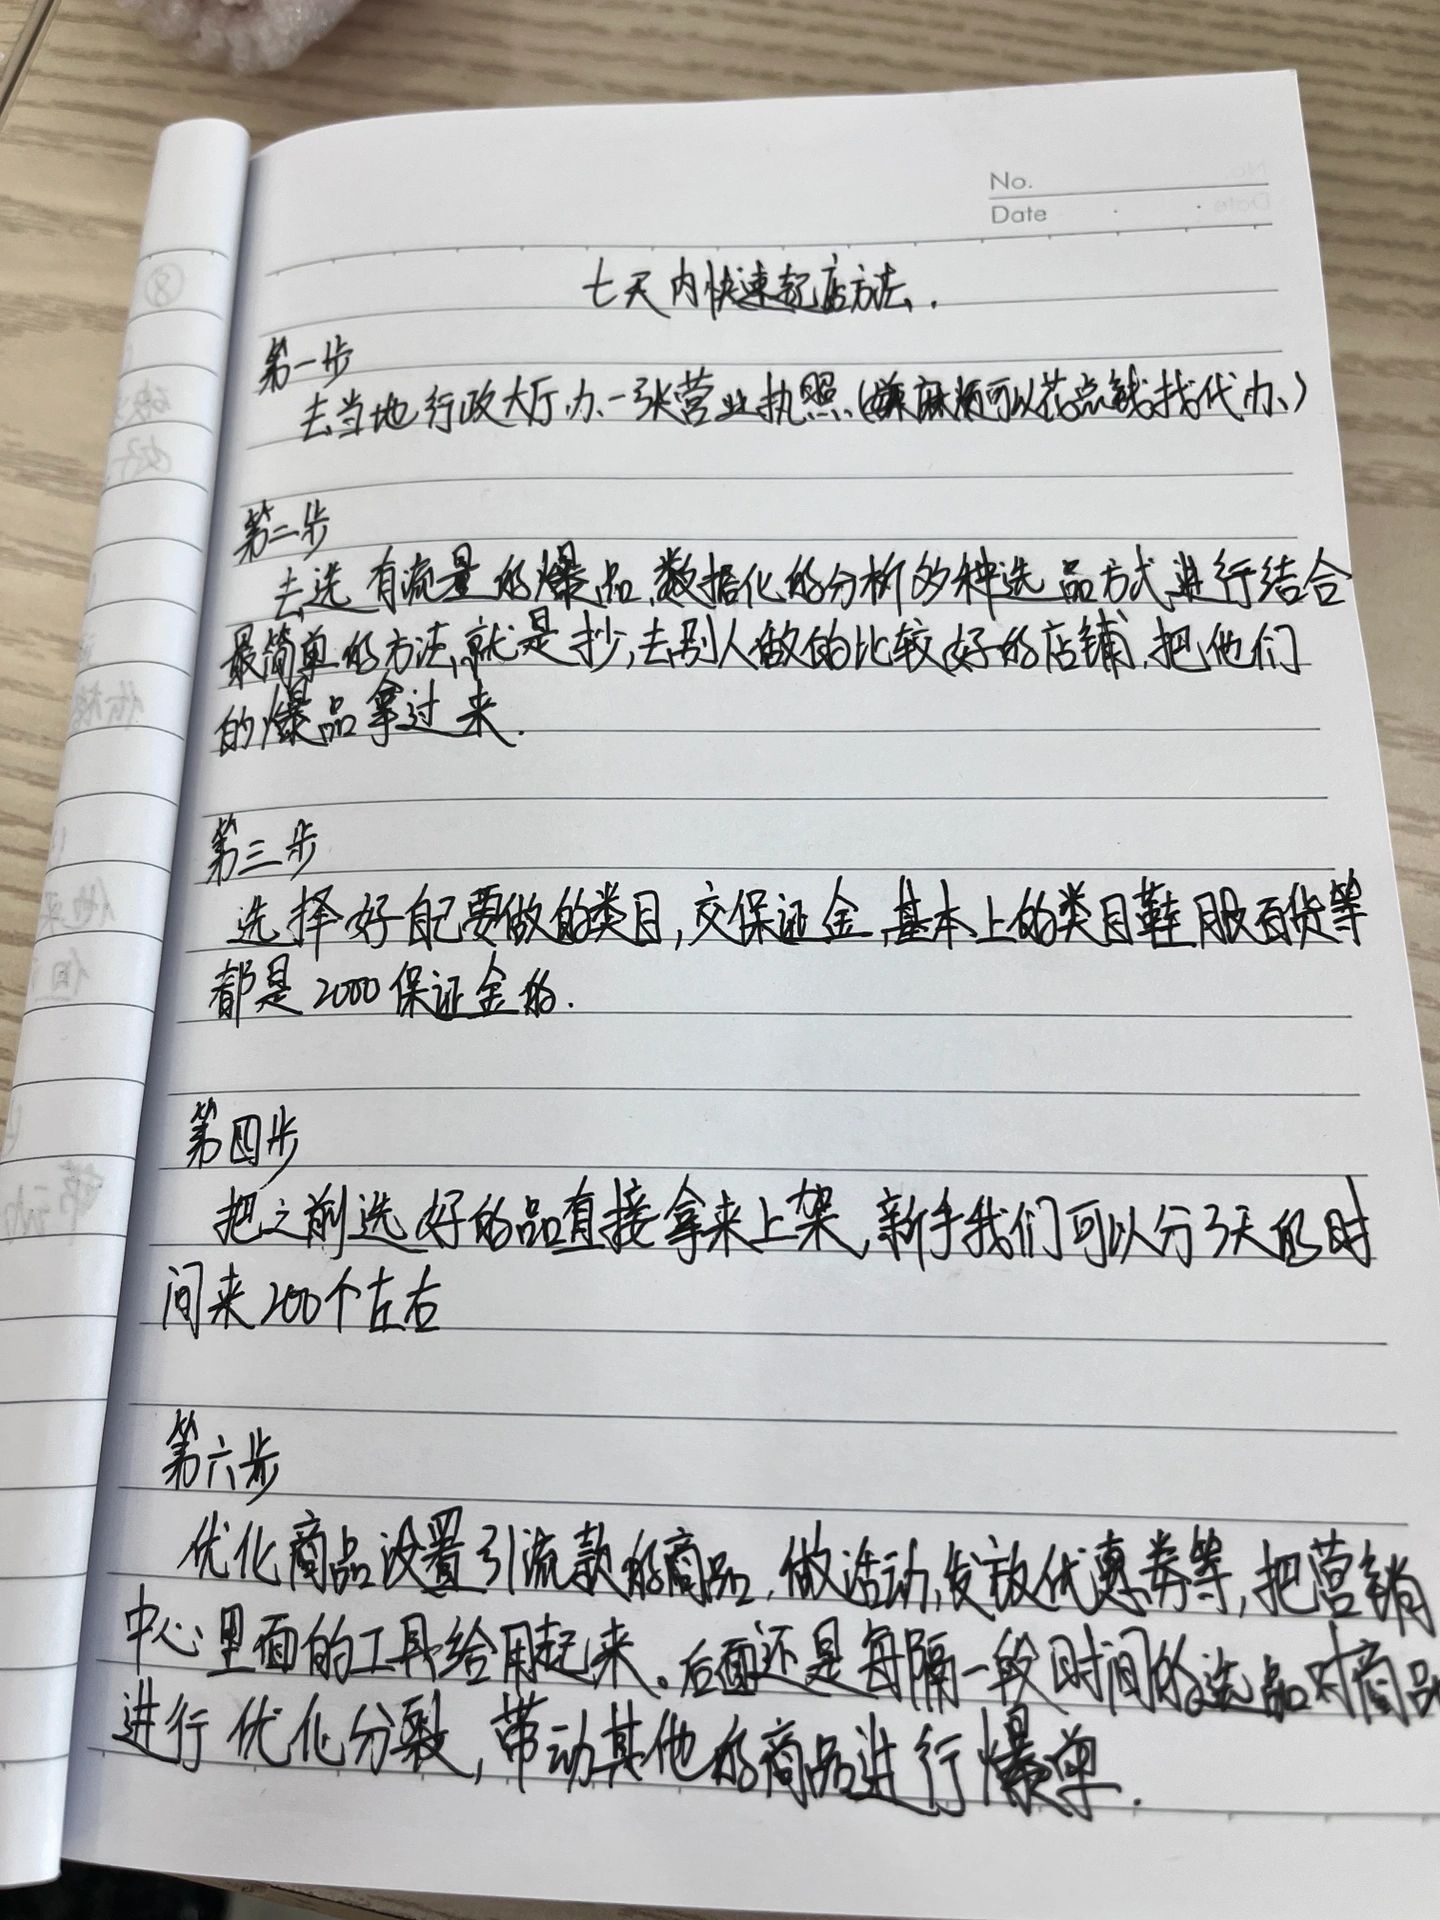 No.
Date
七天内快速起店方法.
第一步
去当地行政大厅办一张营业执照(嫌麻烦可以花点钱找代办)
第二步
去选有流量的爆品,数据化的分析多种选品方式进行结合
最简单的方法,就是抄,去别人做的比较好的店铺,把他们
的爆品拿过来.
第三步
选择好自己要做的类目,交保证金,基本上的类目鞋服百货等
都是2000保证金的.
第四步
把之前选好的品直接拿来上架,新手我们可以分3天的时
间来200个左右
第六步
优化商品设置引流款的商品,做活动,发放优惠券等,把营销
中心里面的工具给用起来。后面还是每隔一段时间的选品对商品
进行优化分裂,带动其他的商品进行爆单.